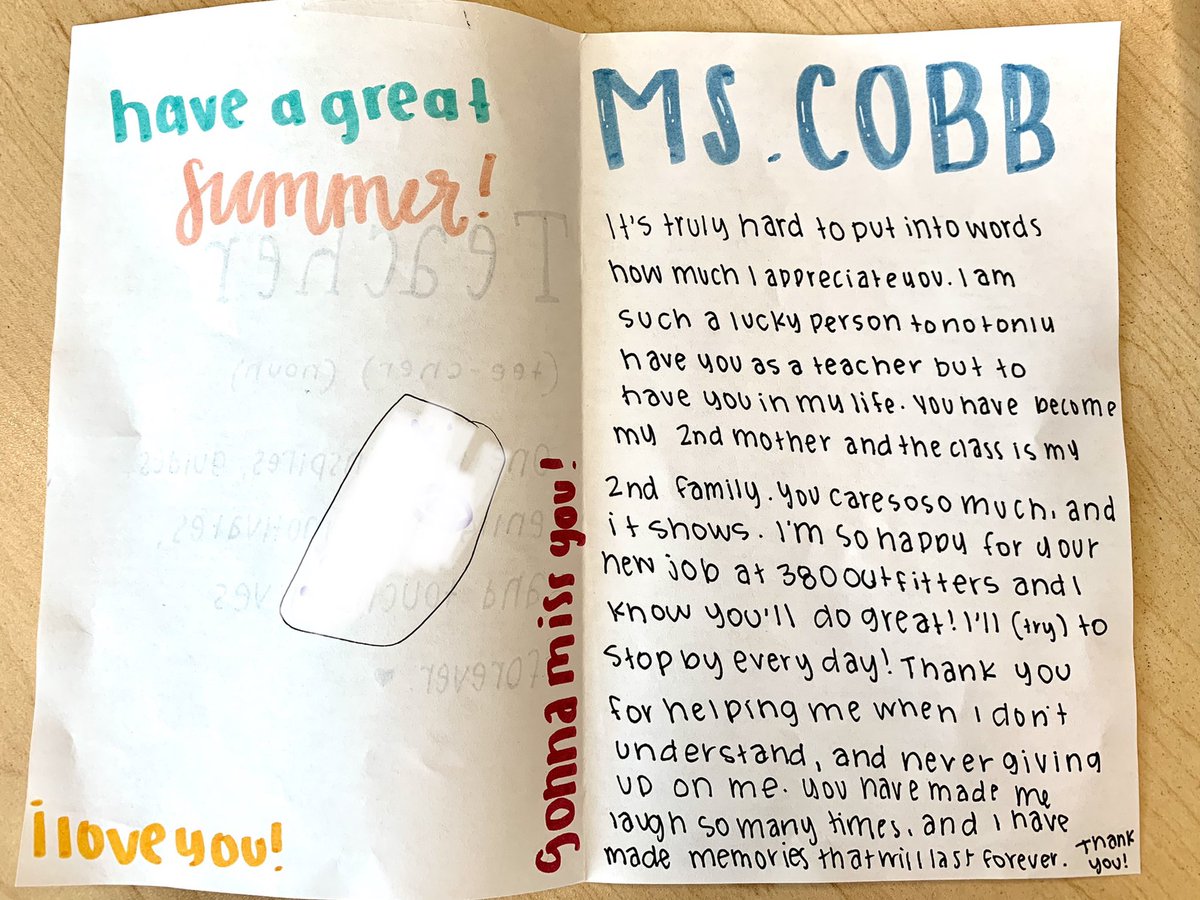 have a great
summer!
Teacher
(tee-cher) (noun)
forever. ♥
i love you!
Gonna miss you!
MS. COBB
It's truly hard to put into words
how much I appreciate you. I am
such a lucky person to not only
have you as a teacher but to
have you in my life. You have become
my 2nd mother and the class is my
2nd family. You care so so much, and
it shows. I'm so happy for your
new job at 380 Outfitters and I
know you'll do great! I'll (try) to
stop by every day! Thank you
for helping me when I don't
understand, and never giving
up on me. You have made me
laugh so many times, and I have
made memories that will last forever.
Thank
you!